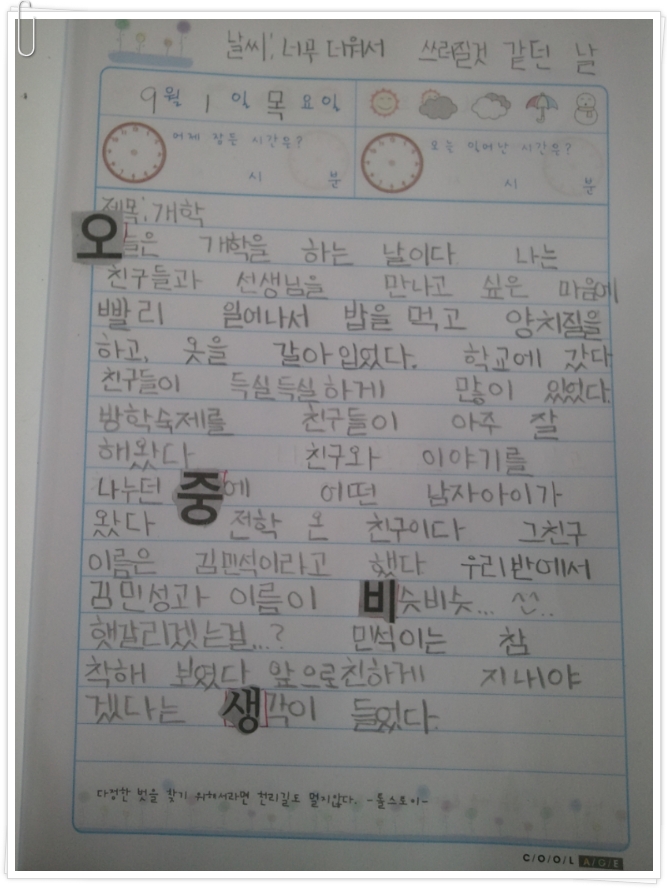 날씨: 너무 더워서 쓰러질것 같던 날
9 월 1 일 목 요일
어제 잠든 시간은? 오늘 일어난 시간은?
시 분 시 분
제목: 개학
오늘은 개학을 하는 날이다. 나는
친구들과 선생님을 만나고 싶은 마음에
빨리 일어나서 밥을 먹고 양치질을
하고, 옷을 갈아입었다. 학교에 갔다
친구들이 득실득실하게 많이 있었다.
방학숙제를 친구들이 아주 잘
해왔다 친구와 이야기를
나누던 중에 어떤 남자아이가
왔다 전학 온 친구이다 그친구
이름은 김민석이라고 했다 우리반에서
김민성과 이름이 비슷비슷... ^^..
햇갈리겠는걸...? 민석이는 참
착해 보였다 앞으로친하게 지내야
겠다는 생각이 들었다.
다정한 벗을 찾기 위해서라면 천리길도 멀지않다. -톨스토이-
C/O/O/L A/G/E